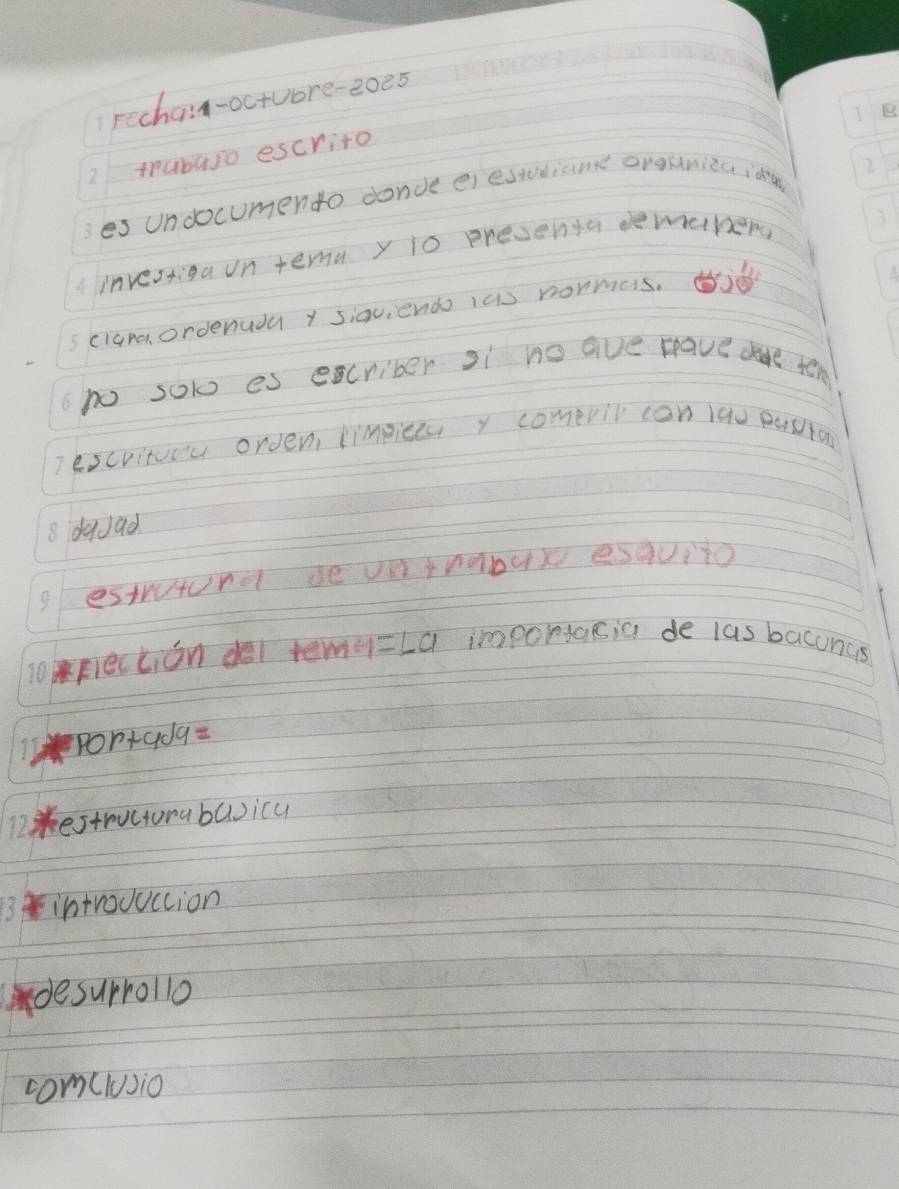 1 Fecha:1-octubre-2025
2 trabajo escrito
3 es undocumento donde el estudiante organiza ideas
4 investiga un tema y lo presenta de manera
5 clara, ordenada y siguiendo las normas.
6 no solo es escriber si no que
7 escritura orden, limpieza y con las
8 dadad
9 estrutura de un trabajo esquito
10 *Elección del tema=La importacia de las bacunas
11 *Portada=
12 *estructura basica
13 *introduccion
*desarrollo
comclusio